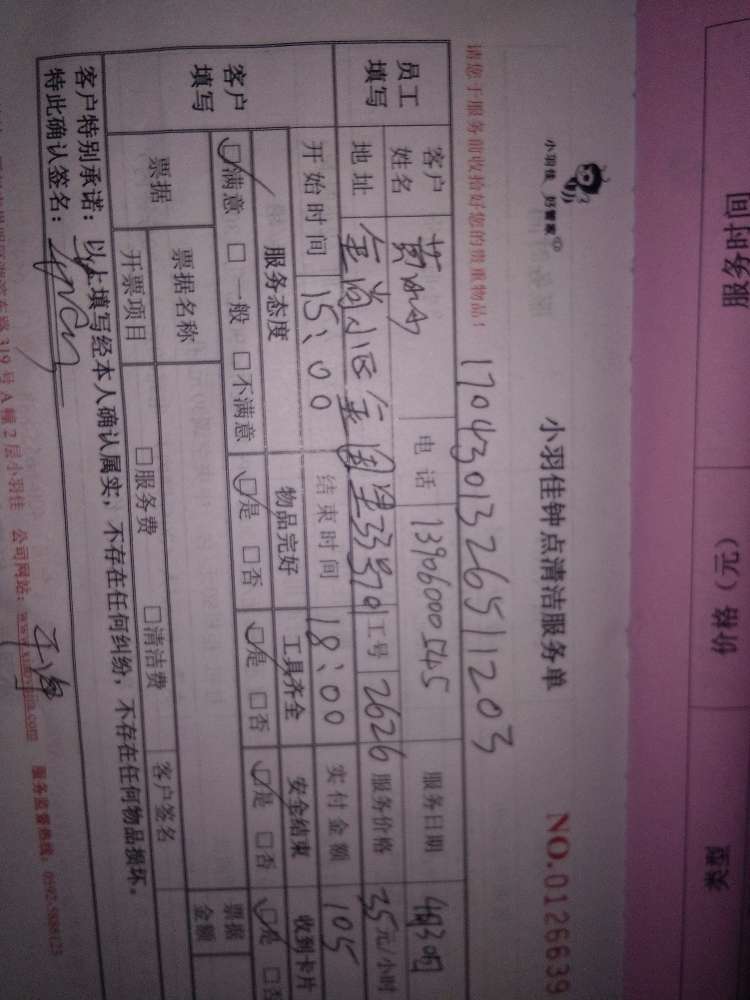 服务时间
价格（元）
小羽佳 好管家
小羽佳钟点清洁服务单
NO.0126639
请您于服务前收拾好您的贵重物品！
1704301326511203
员工填写
客户姓名
电话 13906000545
服务日期
地址
工号 2626
服务价格 35元/小时
客户填写
开始时间 15:00
结束时间 18:00
实付金额 105
服务态度 物品完好 工具齐全 安全结束 收到卡片
☑满意 □一般 □不满意 ☑是 □否 ☑是 □否 ☑是 □否 ☑是 □否
票据
票据名称
客户签名
票据金额
开票项目
□服务费 □清洁费
客户特别承诺：以上填写经本人确认属实，不存在任何纠纷，不存在任何物品损坏。
特此确认签名：
319号A幢2层小羽佳 公司网站： 服务监督热线：